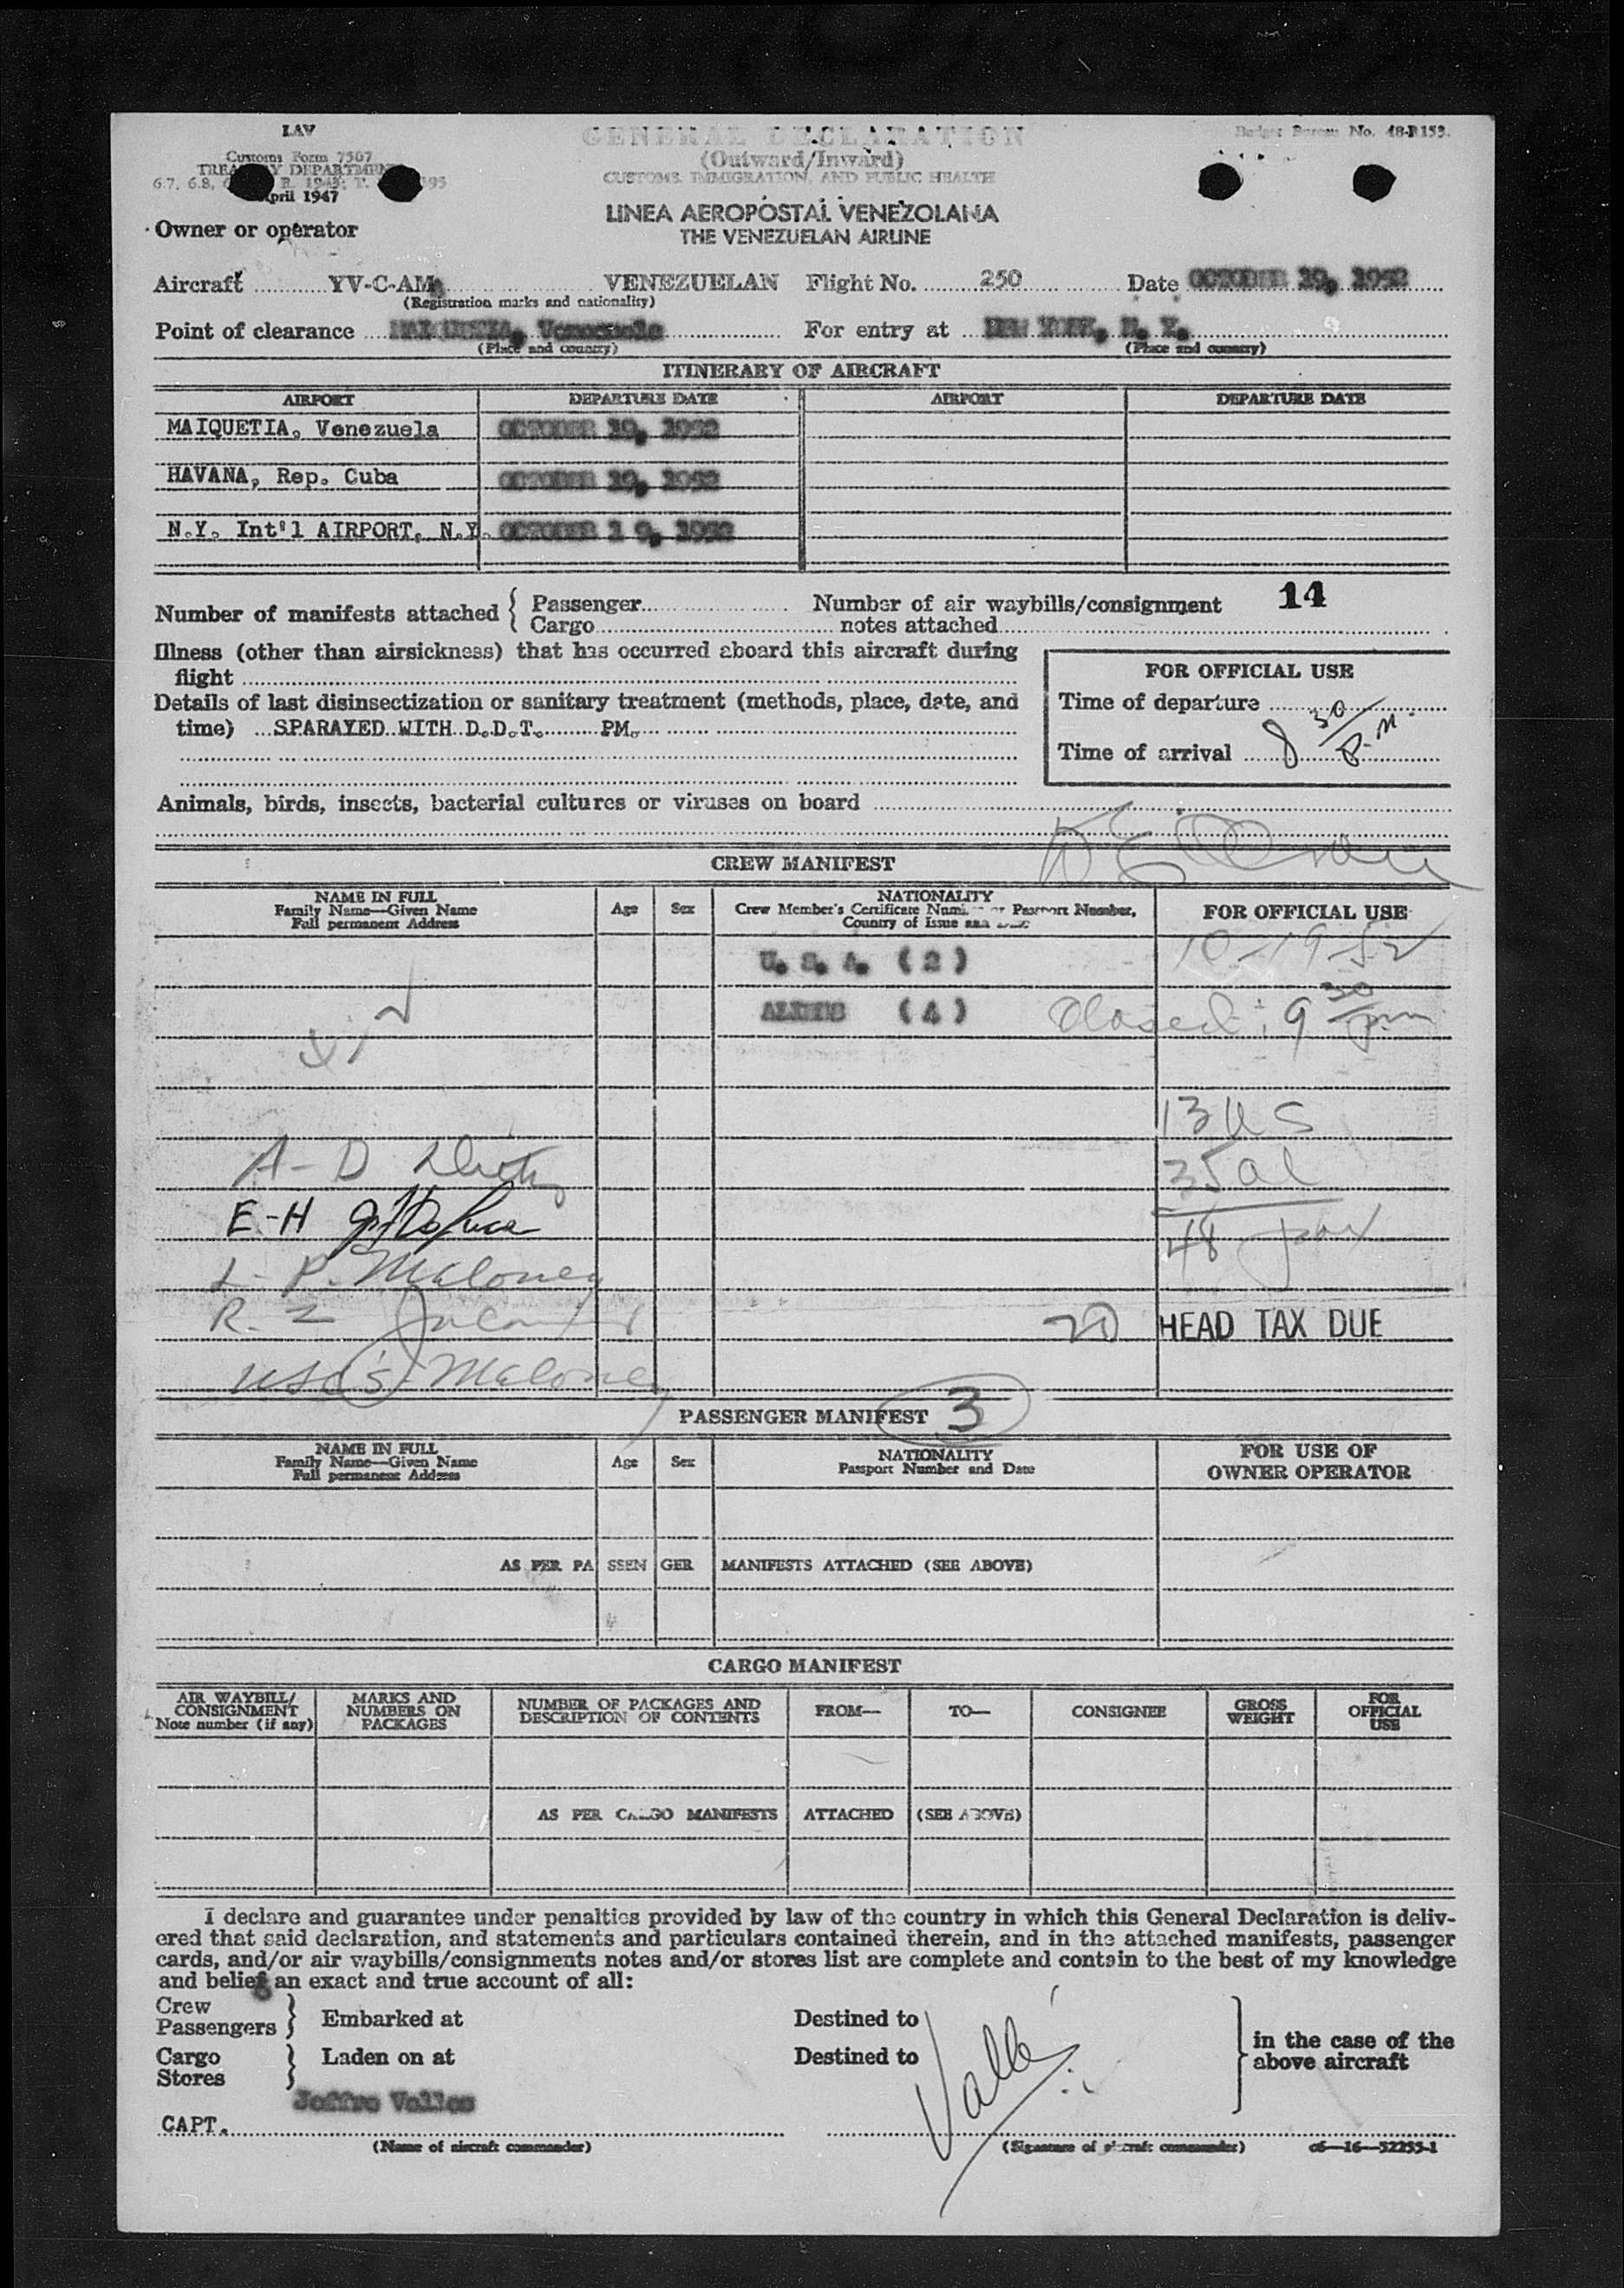 LAV
GENERAL DECLARATION
Budget Bureau No. 48-R153.
Customs Form 7507
(Outward/Inward)
TREASURY DEPARTMENT
CUSTOMS, IMMIGRATION, AND PUBLIC HEALTH
April 1947
LINEA AEROPOSTAL VENEZOLANA
THE VENEZUELAN AIRLINE
Owner or operator
Aircraft YV-C-AM VENEZUELAN Flight No. 250 Date OCTOBER 19, 1952
(Registration marks and nationality)
Point of clearance MAIQUETIA, Venezuela For entry at NEW YORK, N. Y.
(Place and country) (Place and country)
ITINERARY OF AIRCRAFT
AIRPORT DEPARTURE DATE AIRPORT DEPARTURE DATE
MAIQUETIA, Venezuela OCTOBER 19, 1952
HAVANA, Rep. Cuba OCTOBER 19, 1952
N.Y. Int'l AIRPORT, N.Y. OCTOBER 1 9, 1952
14
Number of manifests attached { Passenger Number of air waybills/consignment
Cargo notes attached
Illness (other than airsickness) that has occurred aboard this aircraft during
flight
FOR OFFICIAL USE
Details of last disinsectization or sanitary treatment (methods, place, date, and
time) SPARAYED WITH D.D.T. PM.
Time of departure
Time of arrival 8 30 P.M.
Animals, birds, insects, bacterial cultures or viruses on board
CREW MANIFEST
NAME IN FULL
Family Name—Given Name
Full permanent Address
Age Sex
NATIONALITY
Crew Member's Certificate Number or Passport Number,
Country of Issue and Date
FOR OFFICIAL USE
U. S. A. (2) 10-19-52
ALIENS (4) Closed: 9 30 pm
13 US
A-D
35 al
E-H
48 pax
L-P. Maloney
R-Z
20 HEAD TAX DUE
USC's Maloney
PASSENGER MANIFEST 3
NAME IN FULL
Family Name—Given Name
Full permanent Address
Age Sex
NATIONALITY
Passport Number and Date
FOR USE OF
OWNER OPERATOR
AS PER PASSENGER MANIFESTS ATTACHED (SEE ABOVE)
CARGO MANIFEST
AIR WAYBILL/
CONSIGNMENT
Note number (if any)
MARKS AND
NUMBERS ON
PACKAGES
NUMBER OF PACKAGES AND
DESCRIPTION OF CONTENTS
FROM— TO— CONSIGNEE
GROSS
WEIGHT
FOR
OFFICIAL
USE
AS PER CARGO MANIFESTS ATTACHED (SEE ABOVE)
I declare and guarantee under penalties provided by law of the country in which this General Declaration is deliv-
ered that said declaration, and statements and particulars contained therein, and in the attached manifests, passenger
cards, and/or air waybills/consignments notes and/or stores list are complete and contain to the best of my knowledge
and belief an exact and true account of all:
Crew
Passengers } Embarked at Destined to
in the case of the
above aircraft
Cargo
Stores } Laden on at Destined to
Valle
CAPT.
(Name of aircraft commander) (Signature of aircraft commander) c6—16—52255-1